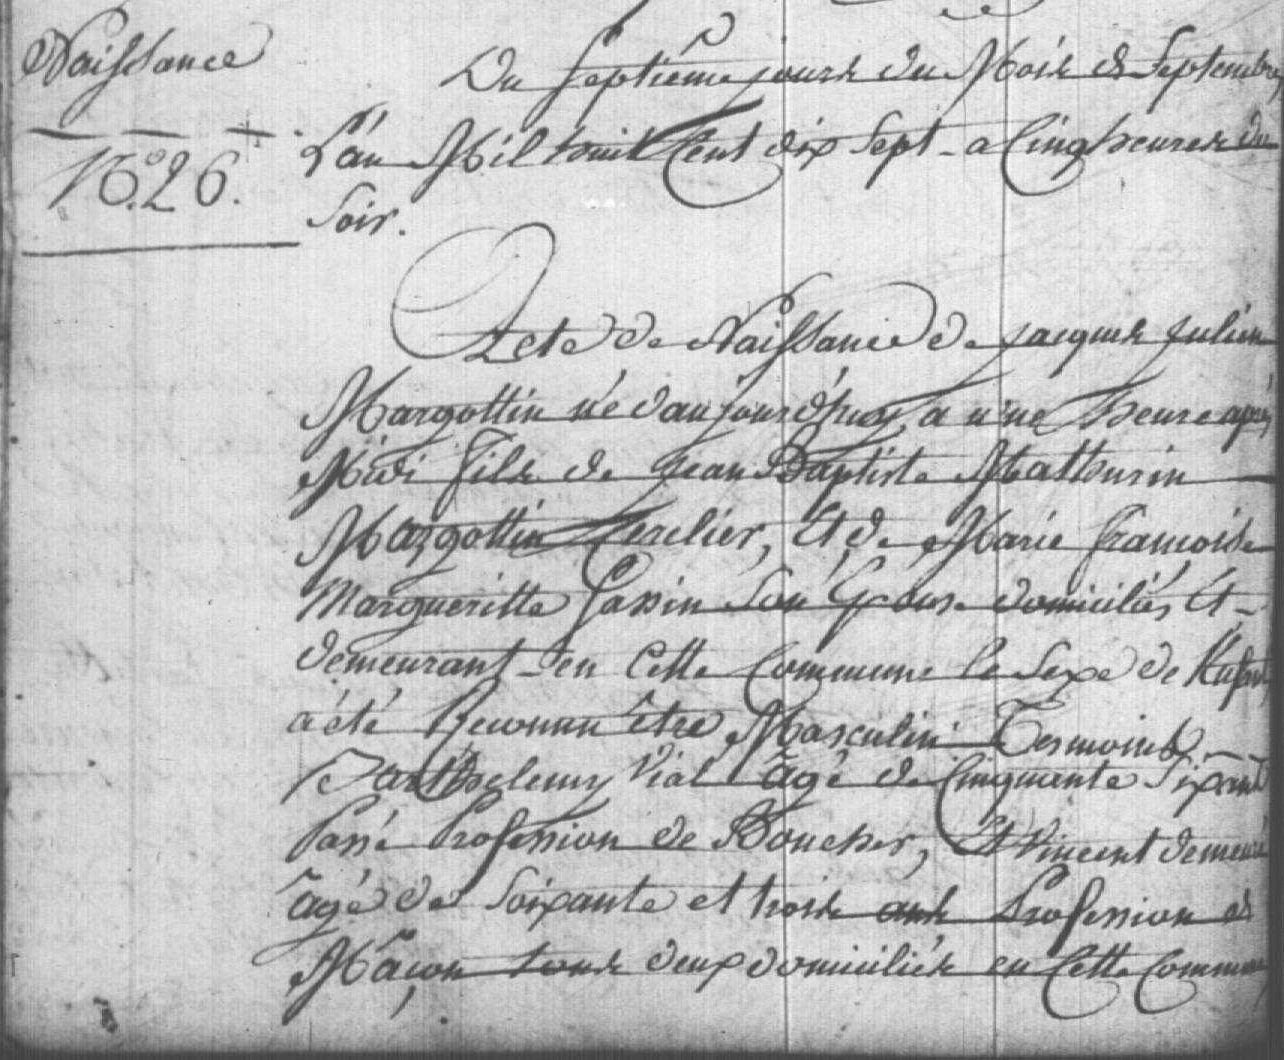 Naissance
N.º 26.
Du Septieme jours du Mois de Septembre
L'an Mil huit Cent dix Sept - a Cinq heures du
Soir.
Acte de Naissance de jacques julien
Margottin né daujourdhuy a une heure apres
Midi fils de jean Baptiste Mathurin
Margottin Cerclier, Et de Marie francoise
Margueritte Son Epouse domiciliés Et -
demeurant en Cette Commune le Sexe de
a été Reconnu être Masculin Tesmoins
Barthelemy Vial âgé de Cinquante Six ans
Passé Profession de Boucher, Et Vincent
âgé de Soixante et trois ans Profession de
Maçon tous deux domiciliés en Cette Commune